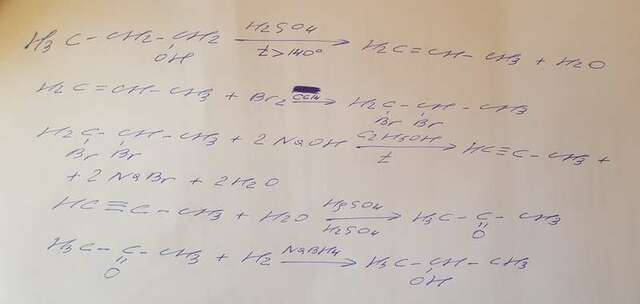 H3C-CH2-CH2 H2SO4 t>140° → H2C=CH-CH3 + H2O
OH
H2C=CH-CH3 + Br2 CCl4 → H2C-CH-CH3
Br Br
H2C-CH-CH3 + 2 NaOH C2H5OH t → HC≡C-CH3 +
Br Br
+ 2 NaBr + 2H2O
HC≡C-CH3 + H2O HgSO4 H2SO4 → H3C-C-CH3
O
H3C-C-CH3 + H2 NaBH4 → H3C-CH-CH3
O OH